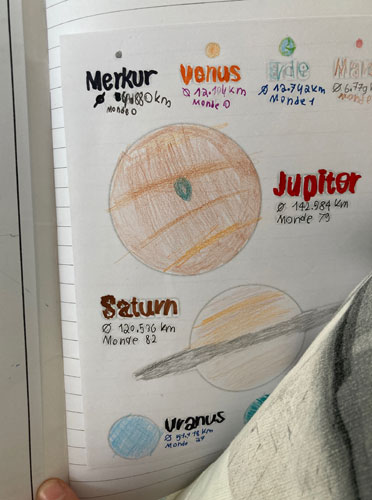 Merkur
Monde 0
Venus
Ø 12.104 km
Monde 0
Erde
Ø 12.742 km
Monde 1
Ø 6.779
Monde
Jupiter
Ø 142.984 km
Monde 79
Saturn
Ø 120.536 km
Monde 82
Uranus
Monde 27